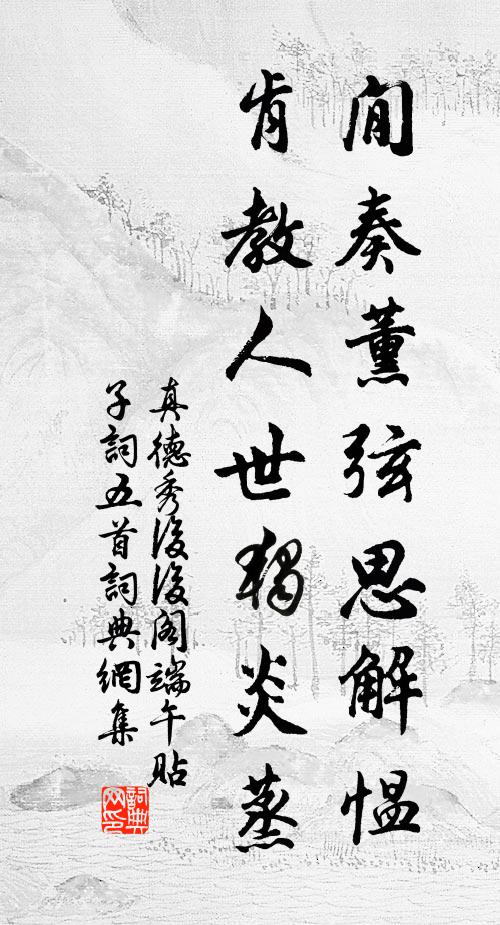 閒奏薰弦思解愠
肯教人世獨炎蒸
真德秀後後閣端午貼
子詞五首詞典網集
詞典
网印